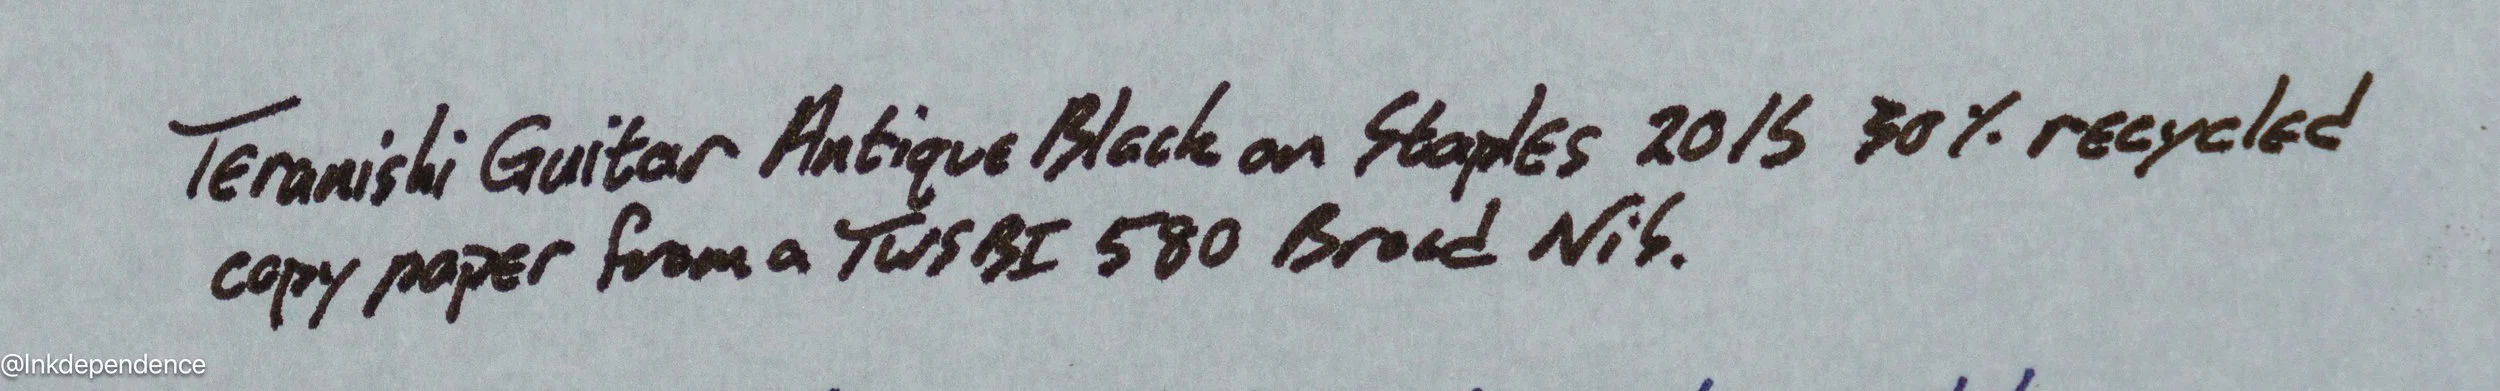 Teranishi Guitar Antique Black on Staples 2015 30% recycled
copy paper from a TWSBI 580 Broad Nib.
@Inkdependence